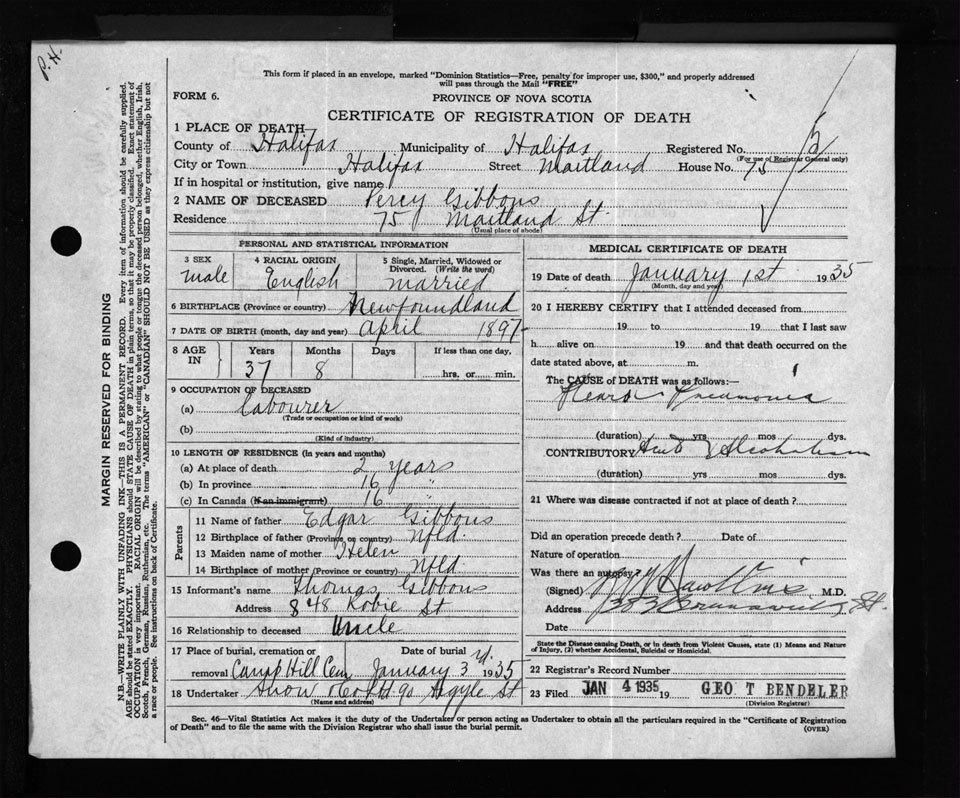 P. H.
This form if placed in an envelope, marked "Dominion Statistics—Free, penalty for improper use, $300," and properly addressed
will pass through the Mail "FREE"
FORM 6.
PROVINCE OF NOVA SCOTIA
CERTIFICATE OF REGISTRATION OF DEATH
1 PLACE OF DEATH
County of Halifax Municipality of Halifax Registered No.
(For use of Registrar General only)
City or Town Halifax Street Maitland House No. 75
If in hospital or institution, give name
2 NAME OF DECEASED Percy Gibbons
Residence 75 Maitland St
(Usual place of abode)
PERSONAL AND STATISTICAL INFORMATION
3 SEX 4 RACIAL ORIGIN 5 Single, Married, Widowed or
Divorced. (Write the word)
male English married
6 BIRTHPLACE (Province or country) Newfoundland
7 DATE OF BIRTH (month, day and year) April 1897
8 AGE IN Years Months Days If less than one day,
37 8 hrs. or min.
9 OCCUPATION OF DECEASED
(a) labourer
(Trade or occupation or kind of work)
(b)
(Kind of industry)
10 LENGTH OF RESIDENCE (in years and months)
(a) At place of death 2 years
(b) In province 16 "
(c) In Canada (if an immigrant) 16
Parents
11 Name of father Edgar Gibbons
12 Birthplace of father (Province or country) Nfld.
13 Maiden name of mother Helen
14 Birthplace of mother (Province or country) Nfld
15 Informant's name Thomas Gibbons
Address 848 Robie St
16 Relationship to deceased Uncle
17 Place of burial, cremation or Date of burial
removal Camp Hill Cem January 3rd. 1935
18 Undertaker Snow & Co Ltd 90 Argyle St
(Name and address)
MEDICAL CERTIFICATE OF DEATH
19 Date of death January 1st 1935
(Month, day and year)
20 I HEREBY CERTIFY that I attended deceased from
19 to 19 that I last saw
h alive on 19 and that death occurred on the
date stated above, at m.
The CAUSE of DEATH was as follows:—
Pneumonia
(duration) yrs mos dys.
CONTRIBUTORY Alcoholism
(duration) yrs mos dys.
21 Where was disease contracted if not at place of death?
Did an operation precede death? Date of
Nature of operation
Was there an autopsy?
(Signed) M.D.
Address Brunswick St.
Date
State the Disease causing Death, or in death from Violent Causes, state (1) Means and Nature
of Injury, (2) whether Accidental, Suicidal or Homicidal.
22 Registrar's Record Number
23 Filed JAN 4 1935 19 GEO T BENDELER
(Division Registrar)
Sec. 46—Vital Statistics Act makes it the duty of the Undertaker or person acting as Undertaker to obtain all the particulars required in the "Certificate of Registration
of Death" and to file the same with the Division Registrar who shall issue the burial permit.
(OVER)
MARGIN RESERVED FOR BINDING
N.B.—WRITE PLAINLY WITH UNFADING INK—THIS IS A PERMANENT RECORD. Every item of information should be carefully supplied.
AGE should be stated EXACTLY. PHYSICIANS should STATE CAUSE OF DEATH in plain terms, so that it may be properly classified. Exact statement of
OCCUPATION is very important. RACIAL ORIGIN will be described by stating to what people or tongue the deceased person belonged, whether English, Irish,
Scotch, French, German, Russian, Ruthenian, etc. The terms "AMERICAN" or "CANADIAN" SHOULD NOT BE USED as they express citizenship but not
a race or people. See instructions on back of Certificate.